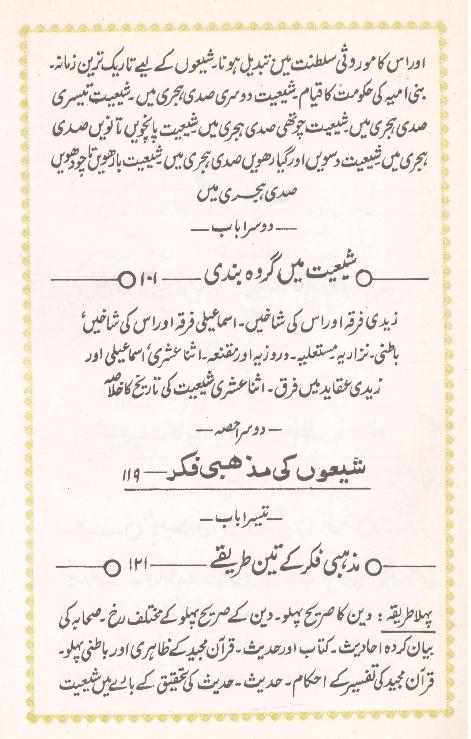 اور اس کا موروثی سلطنت میں تبدیل ہونا۔ شیعوں کے لیے تاریک ترین زمانہ۔
بنی امیہ کی حکومت کا قیام۔ شیعیت دوسری صدی ہجری میں۔ شیعیت تیسری
صدی ہجری میں۔ شیعیت چوتھی صدی ہجری میں شیعیت پانچویں تا نویں صدی
ہجری میں شیعیت دسویں اور گیارھویں صدی ہجری میں۔ شیعیت بارھویں تا چودھویں
صدی ہجری میں
— دوسرا باب —
شیعیت میں گروہ بندی — ۱۰۱
زیدی فرقہ اور اس کی شاخیں۔ اسماعیلی فرقہ اور اس کی شاخیں،
باطنی۔ نزاریہ۔ مستعلیہ۔ دروزیہ اور مقنعہ۔ اثنا عشری، اسماعیلی اور
زیدی عقاید میں فرق۔ اثنا عشری شیعیت کی تاریخ کا خلاصہ
— دوسرا حصہ —
شیعوں کی مذھبی فکر — ۱۱۹
— تیسرا باب —
مذہبی فکر کے تین طریقے — ۱۲۱
پہلا طریقہ: دین کا صریح پہلو۔ دین کے صریح پہلو کے مختلف رخ۔ صحابہ کی
بیان کردہ احادیث۔ کتاب اور حدیث۔ قرآن مجید کے ظاہری اور باطنی پہلو۔
قرآن مجید کی تفسیر کے احکام۔ حدیث۔ حدیث کی تحقیق کے بارے میں شیعیت